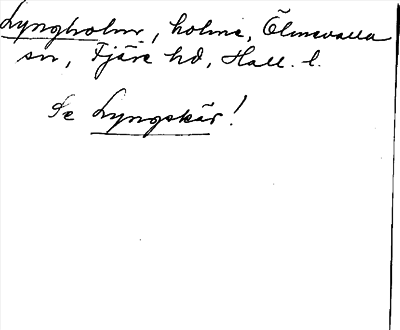 Lyngholm, holme, Ölmevalla
sn, Fjäre hd, Hall. l.
Se Lyngskär!